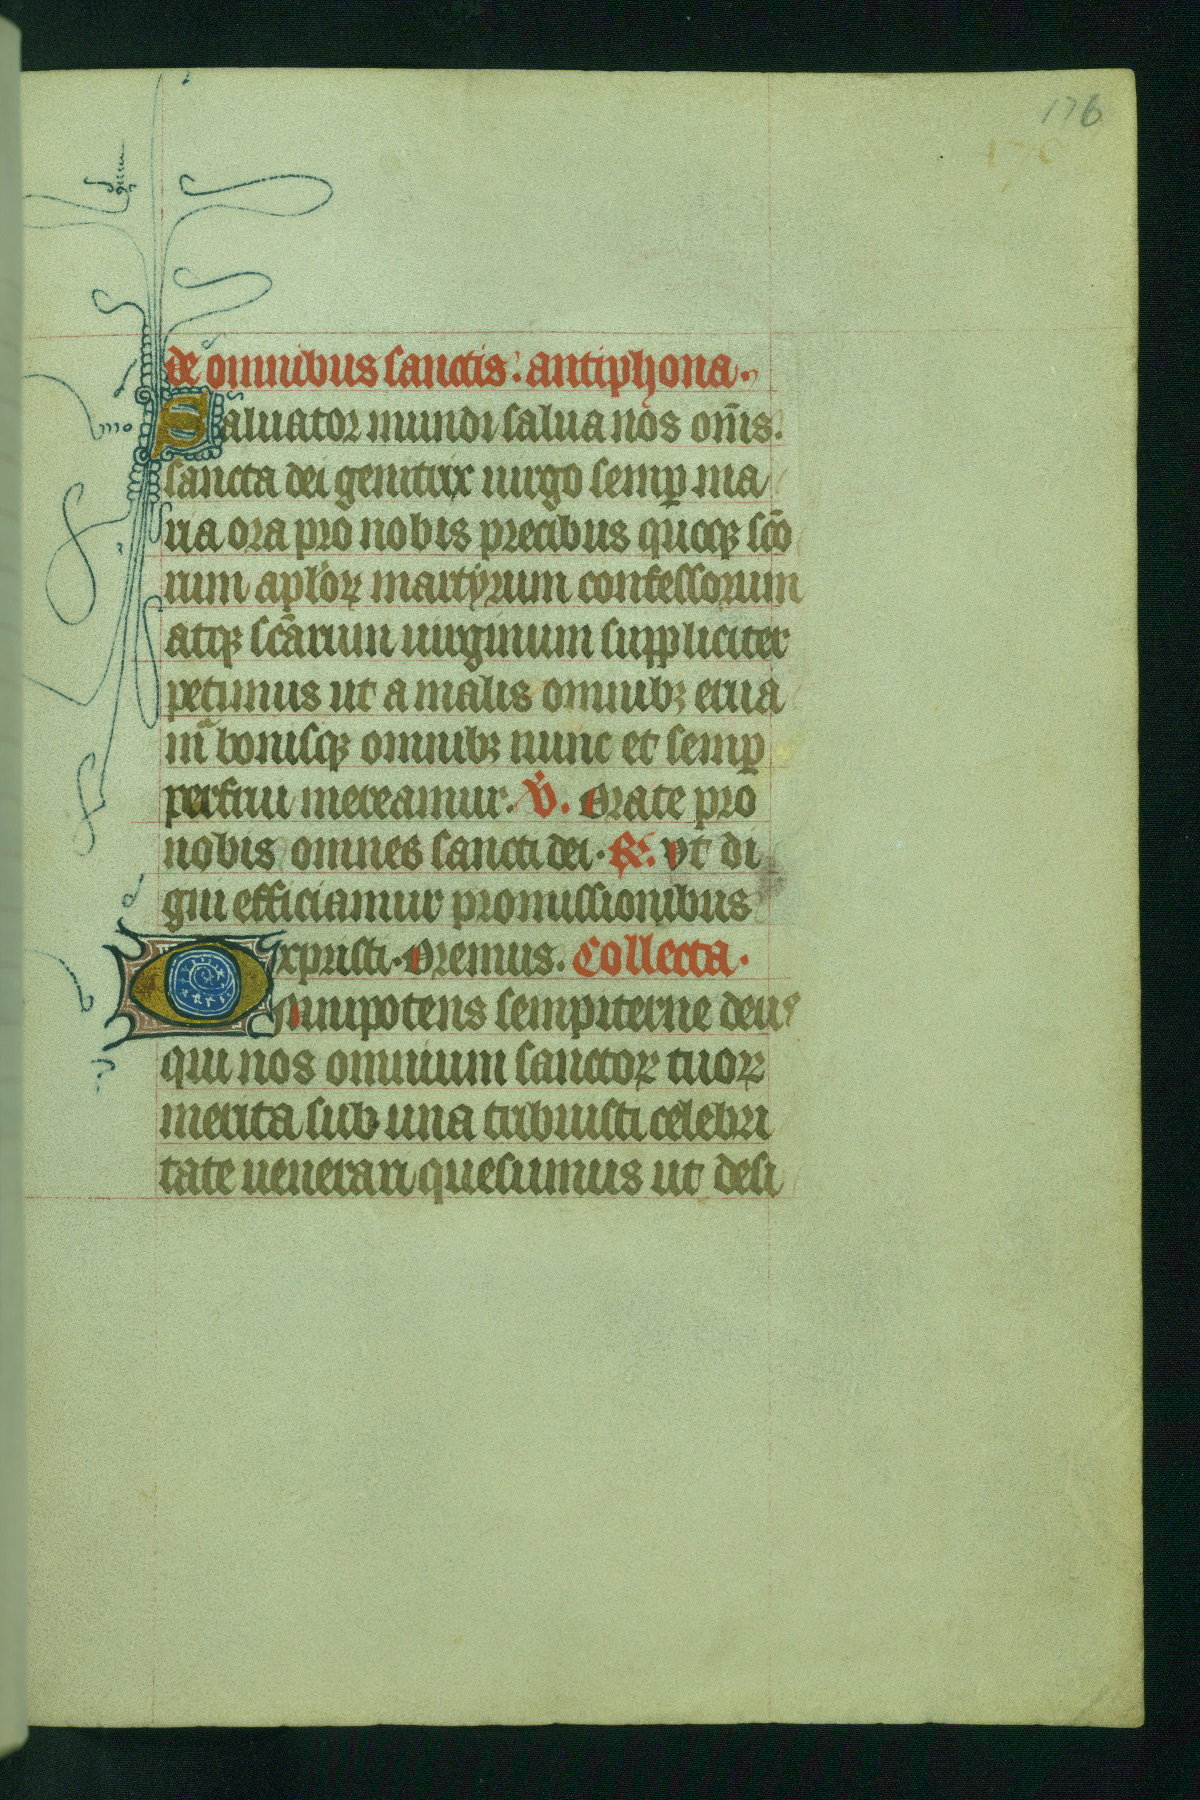 176
de omnibus sanctis. antiphona.
Saluator mundi salua nos om̄is.
sancta dei genitrix uirgo semꝑ ma
ria ora pro nobis precibus quoqꝫ scō
rum aplōꝝ martyrum confessorum
atqꝫ scārum uirginum suppliciter
petimus ut a malis omnibꝫ erua
mᷣ bonisqꝫ omnibꝫ nunc et semꝑ
perfrui mereamur. ℣. Orate pro
nobis omnes sancti dei. ℟. Vt di
gni efficiamur promissionibus
xpristi. Oremus. Collecta.
Omnipotens sempiterne deus
qui nos omnium sanctoꝝ tuoꝝ
merita sub una tribuisti celebri
tate uenerari quesumus ut desi